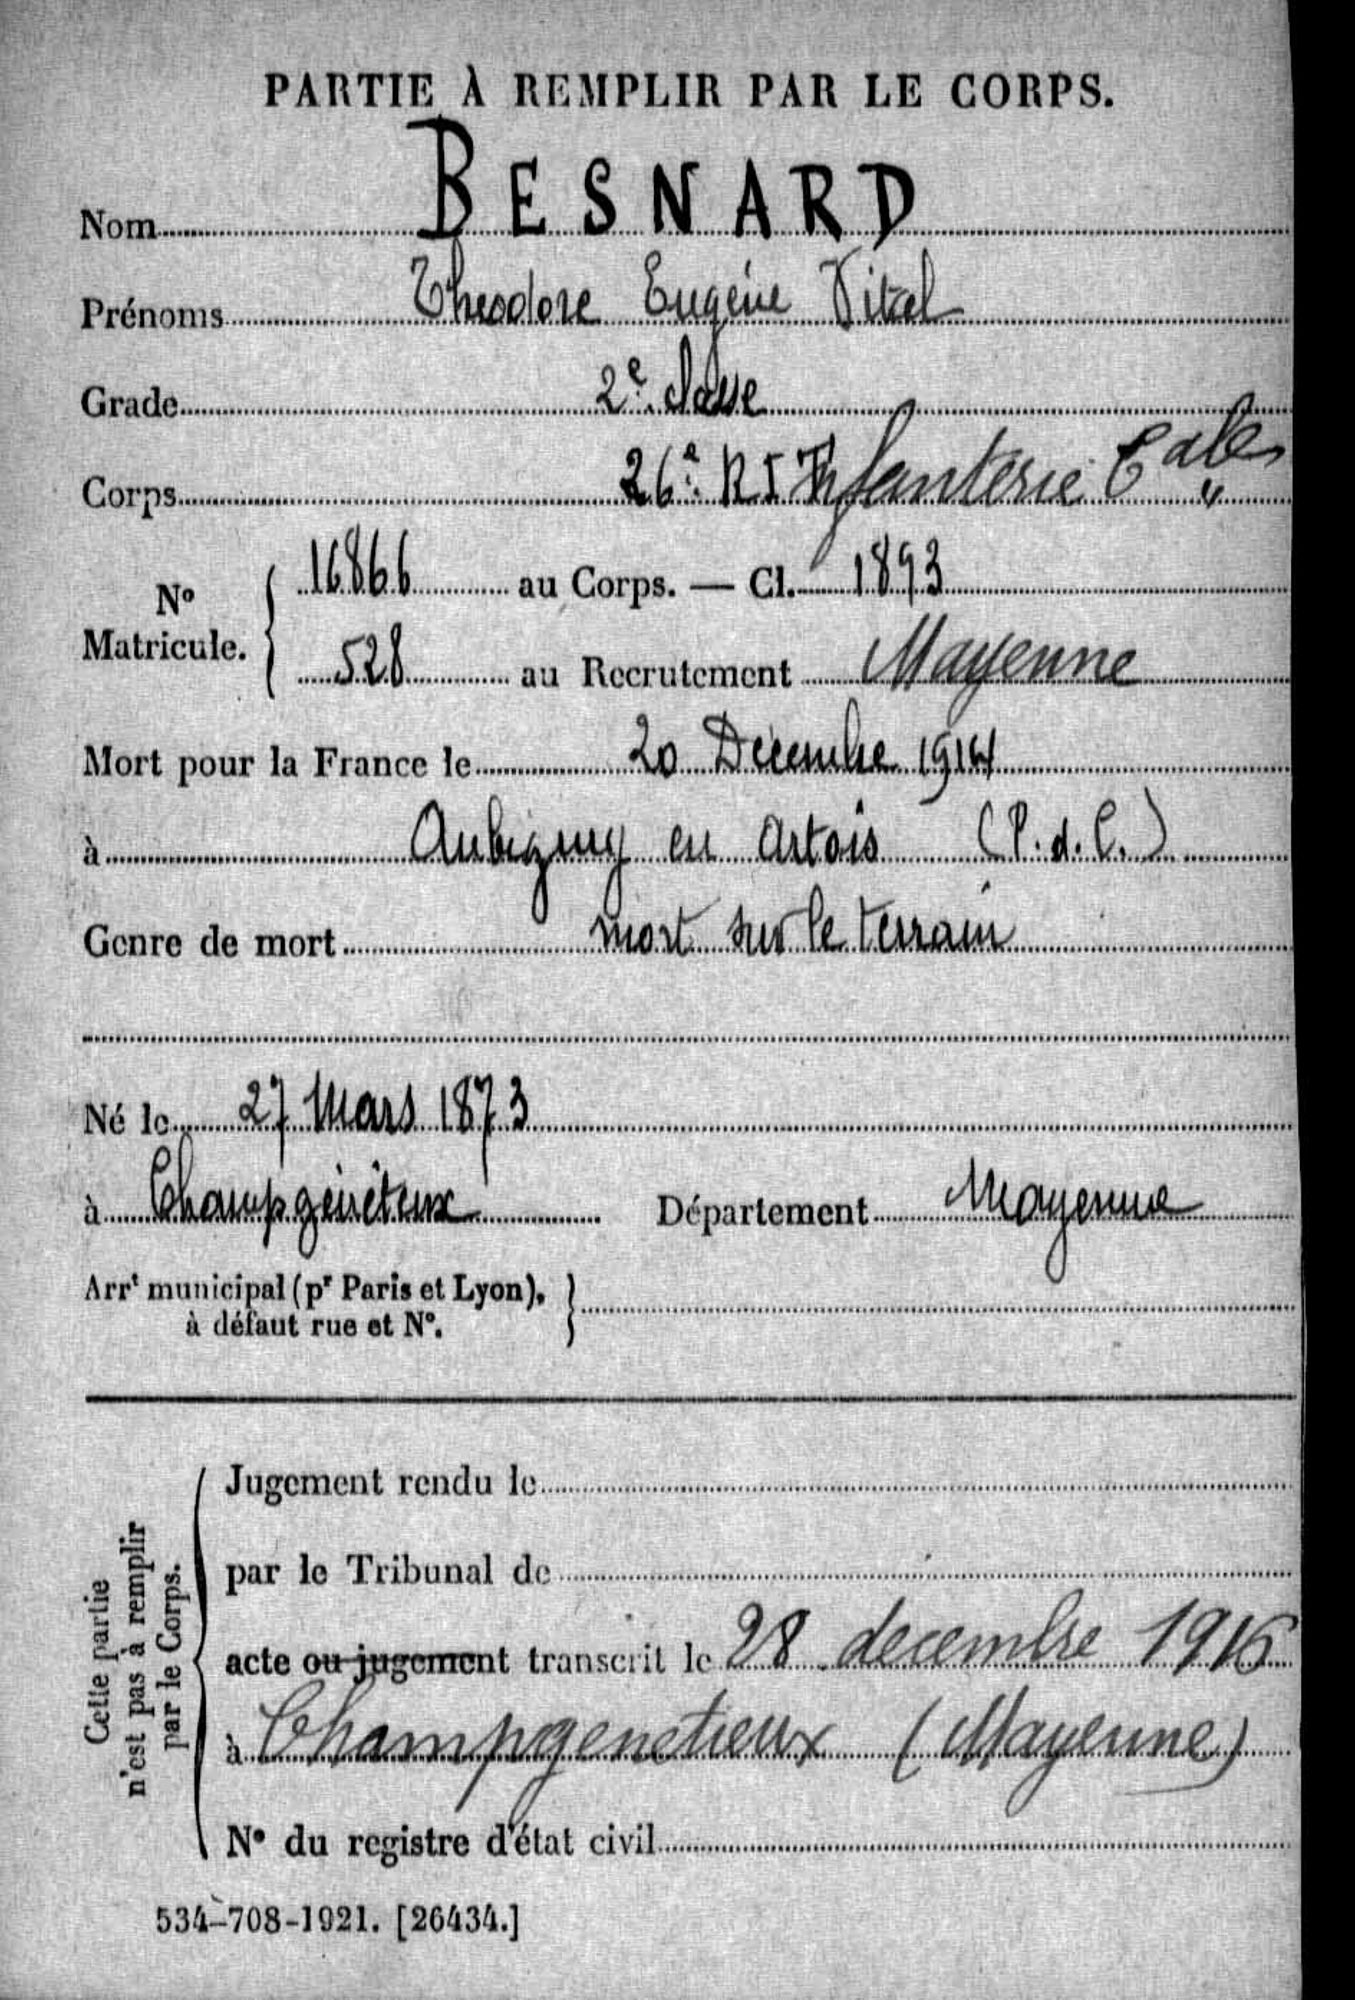 PARTIE À REMPLIR PAR LE CORPS.
Nom BESNARD
Prénoms Théodore Eugène Vital
Grade 2e classe
Corps 26e R I T Infanterie Tale
No Matricule. { 16866 au Corps. — Cl. 1893
528 au Recrutement Mayenne
Mort pour la France le 20 Décembre 1914
à Aubigny en Artois (P.d.C.)
Genre de mort mort sur le terrain
Né le 27 Mars 1873
à Champgenéteux Département Mayenne
Arrt municipal (pr Paris et Lyon), }
à défaut rue et No.
Cette partie
n'est pas à remplir
par le Corps.
Jugement rendu le
par le Tribunal de
acte ou jugement transcrit le 28 decembre 1916
à Champgenetieux (Mayenne)
No du registre d'état civil
534-708-1921. [26434.]